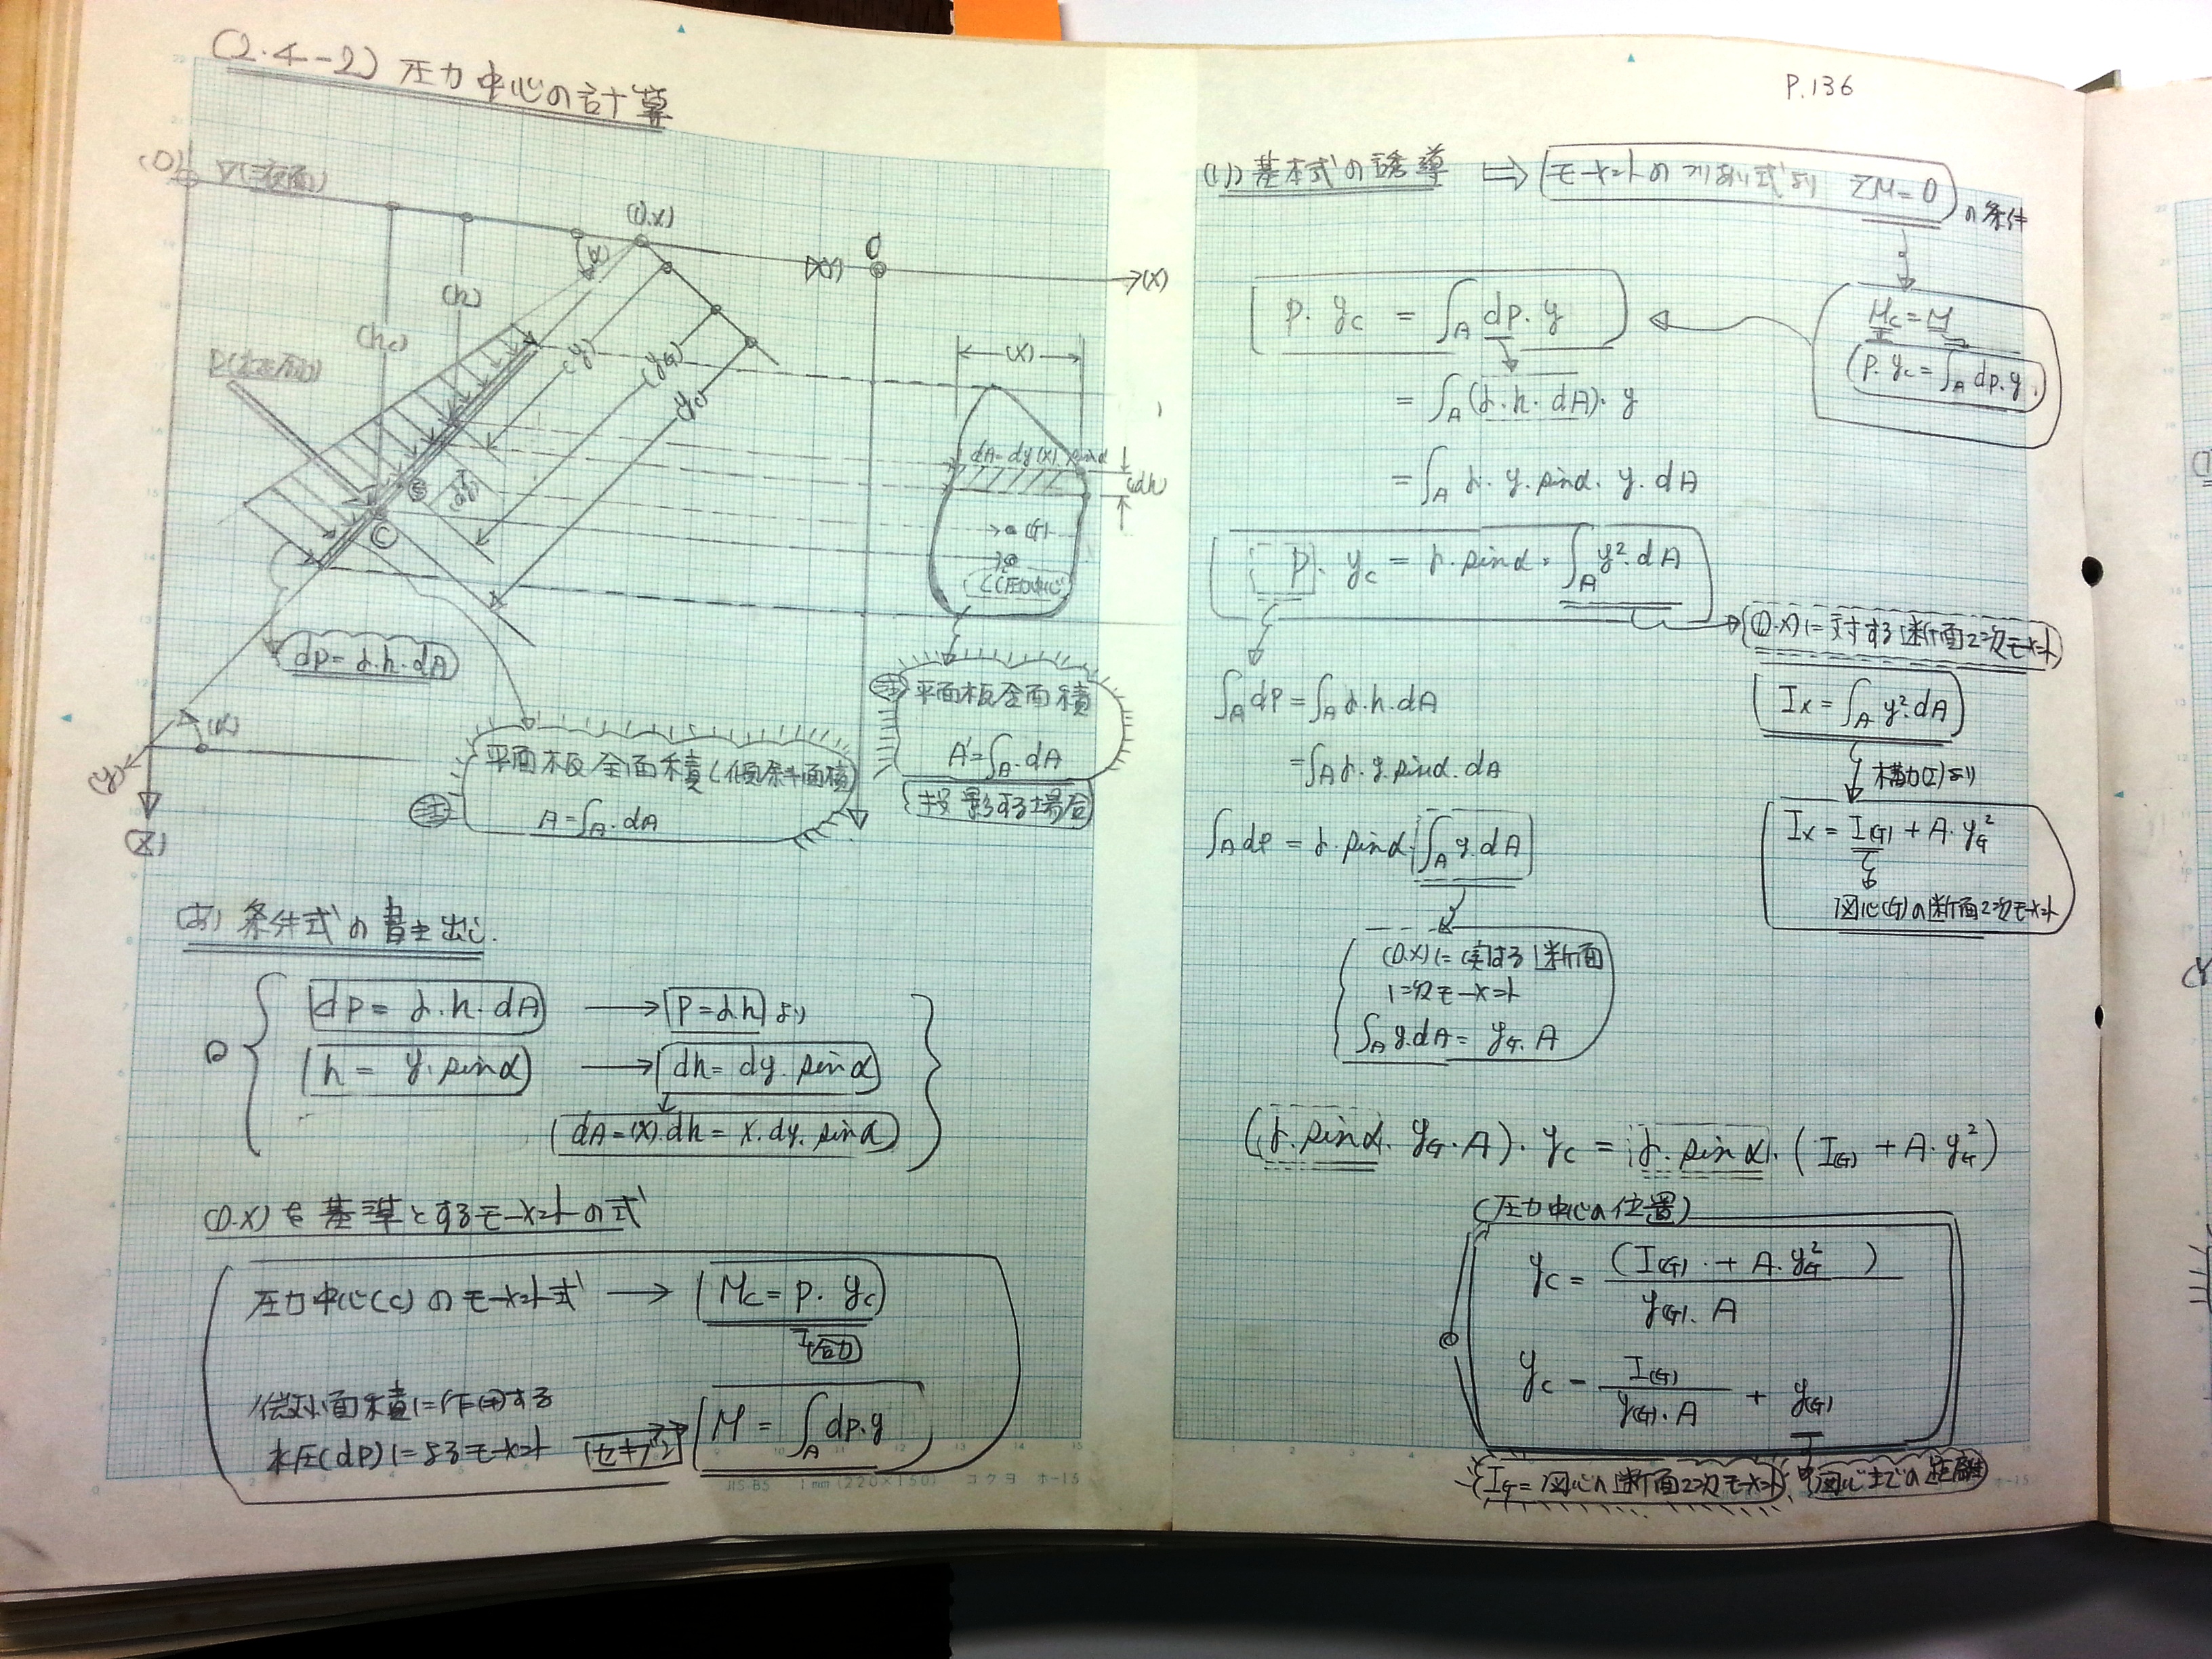 (2.4-2) 圧力中心の計算
(O) ▽(液面)
(O.X)
(α)
(Y)
O
(X)
(h)
(hc)
(y)
(yG)
yc
(X)
dA=dy(X).sinα
(dh)
G
C
(G)
C(圧力中心)
dP=γ.h.dA
(α)
(y)
(Z)
平面板全面積(傾斜面積)
A=∫A.dA
平面板全面積
A'=∫A.dA
投影する場合
(あ) 条件式の書き出し.
dP=γ.h.dA → P=γ.h より
h=y.sinα → dh=dy.sinα
dA=(X).dh=X.dy.sinα
(O.X)を基準とするモーメントの式
圧力中心(C)のモーメント式 → Mc=P.yc
合力
微小面積に作用する
水圧(dP)によるモーメント
M=∫A dP.y
JIS B5 1mm(220×150) コクヨ ホ-15
P.136
(い) 基本式の誘導 ⇒ モーメントのつりあい式より ΣM=0 の条件
Mc=M
(P.yc=∫A dP.y)
P.yc = ∫A dP.y
=∫A(γ.h.dA).y
=∫A γ.y.sinα.y.dA
P.yc=γ.sinα.∫A y².dA
(O.X)に対する断面2次モーメント
Ix=∫A y².dA
構力(I)より
Ix=I(G)+A.yG²
図心(G)の断面2次モーメント
∫A dP=∫A γ.h.dA
=∫A γ.y.sinα.dA
∫A dP=γ.sinα.∫A y.dA
(O.X)に対する断面
1次モーメント
∫A y.dA=yG.A
(γ.sinα.yG.A).yc=γ.sinα.(I(G)+A.yG²)
(圧力中心の位置)
yc=(I(G)+A.yG²)/y(G).A
yc=I(G)/y(G).A + y(G)
IG=図心の断面2次モーメント 図心までの距離
ホ-15